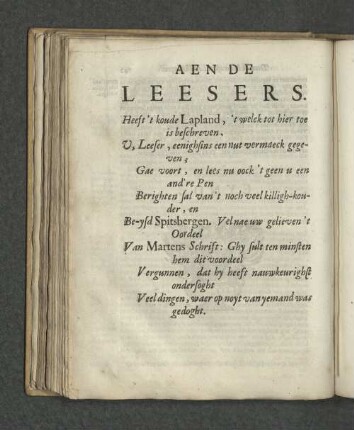 AEN DE
LEESERS.
Heeft 't koude Lapland, 't welck tot hier toe
is beschreven,
U, Leeser, eenighsins een nut vermaeck gege-
ven;
Gae voort, en lees nu oock 't geen u een
and're Pen
Berighten sal van 't noch veel killigh-kou-
der, en
Be-ysd Spitsbergen. Vel na euw gelieven 't
Oordeel
Van Martens Schrift: Ghy sult ten minsten
hem dit voordeel
Vergunnen, dat hy heeft nauwkeurighst
ondersoght
Veel dingen, waer op noyt van yemand was
gedoght.